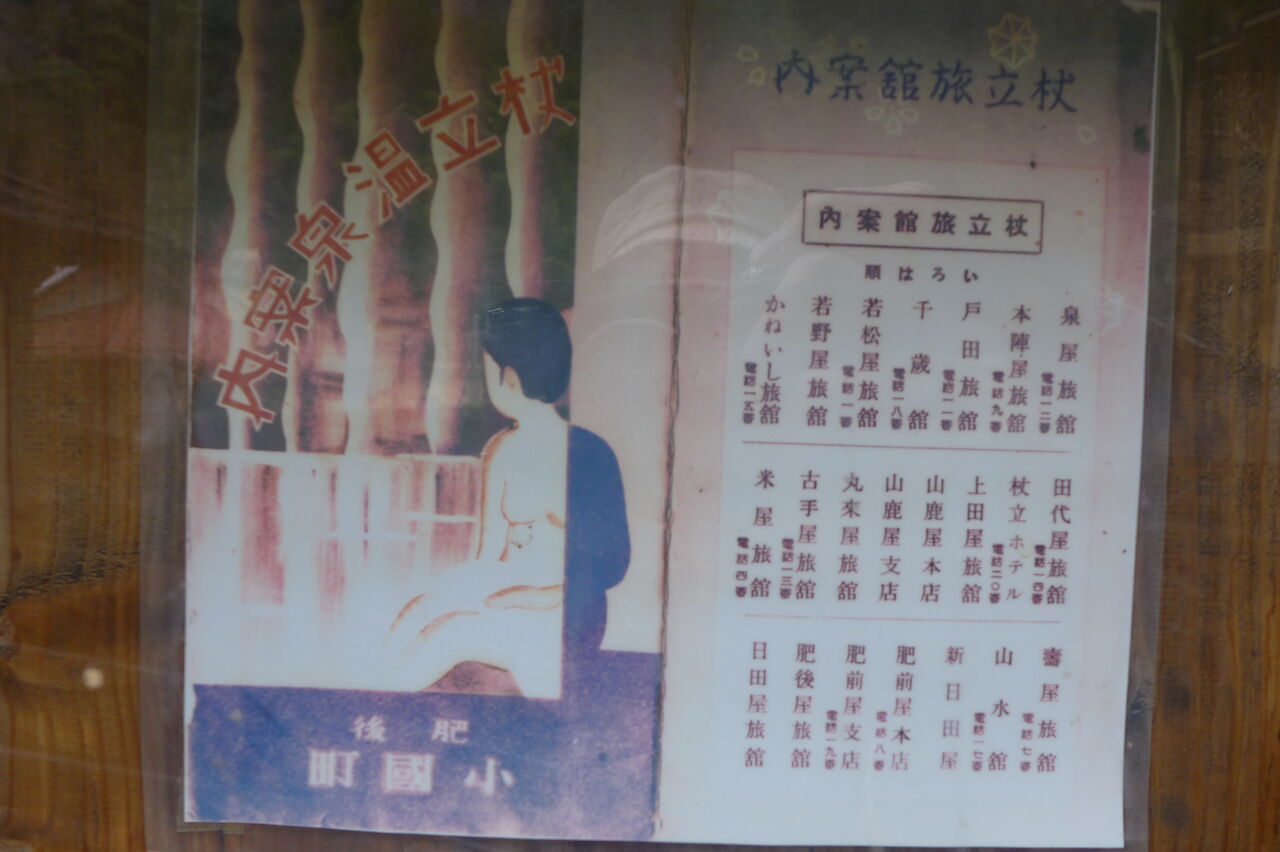 杖立温泉案内
肥後
小國町
杖立旅館案内
杖立旅館案内
いろは順
泉屋旅館
電話一二番
本陣屋旅館
電話九番
戸田旅館
電話一一番
千歳館
電話一八番
若松屋旅館
電話一番
若野屋旅館
かねいし旅館
電話一五番
田代屋旅館
電話一四番
杖立ホテル
電話二〇番
上田屋旅館
山鹿屋本店
山鹿屋支店
丸來屋旅館
古手屋旅館
電話一三番
米屋旅館
電話四番
壽屋旅館
電話七番
山水館
電話一七番
新日田屋
肥前屋本店
電話八番
肥前屋支店
電話一九番
肥後屋旅館
日田屋旅館